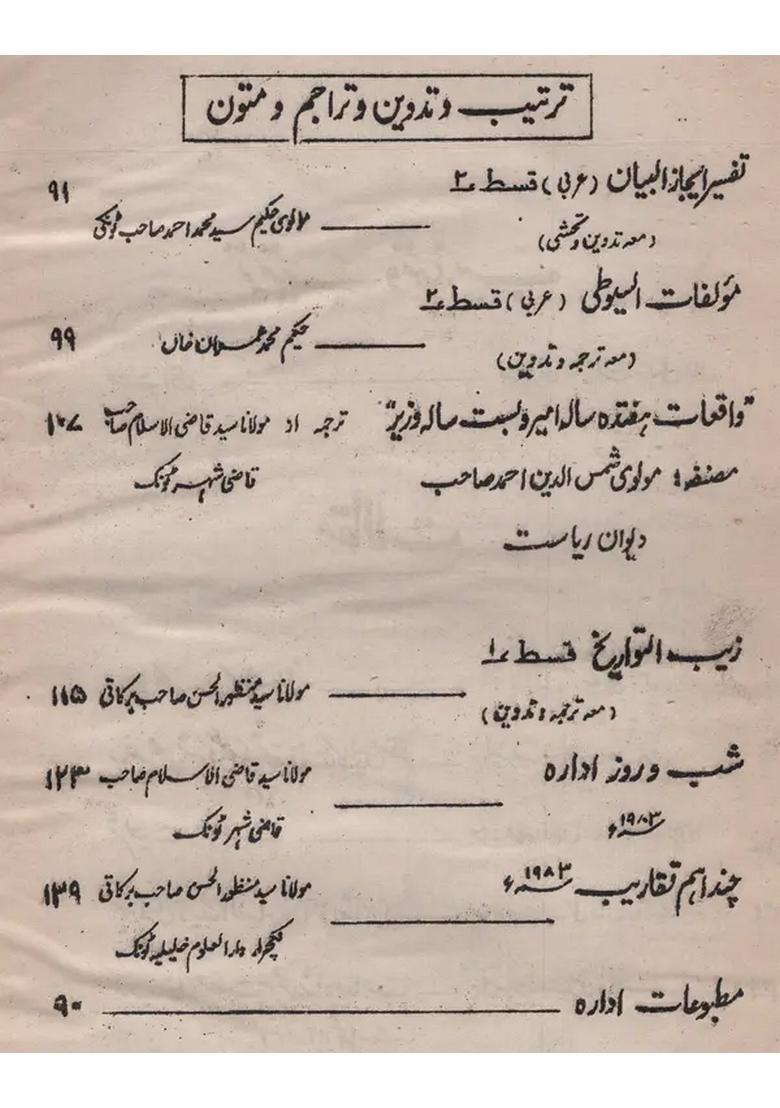 ترتیب و تدوین و تراجم و متون
تفسیر ایجاز البیان (عربی) قسط ۲ ۹۱
(معہ تدوین و تحشی) مولوی حکیم سید محمد احمد صاحب ٹونکی
مؤلفات السیوطی (عربی) قسط ۲
(معہ ترجمہ و تدوین) حکیم محمد عمران خاں ۹۹
"واقعات ہفتدہ سالہ امیر و بست سالہ وزیر" ترجمہ از مولانا سید قاضی الاسلام صاحب ۱۰۷
مصنفہ: مولوی شمس الدین احمد صاحب قاضی شہر ٹونک
دیوان ریاست
زیب التواریخ قسط ۱
(معہ ترجمہ و تدوین) مولانا سید منظور الحسن صاحب برکاتی ۱۱۵
شب و روز ادارہ مولانا سید قاضی الاسلام صاحب ۱۲۳
۱۹۸۳ء قاضی شہر ٹونک
چند اہم تقاریب ۱۹۸۳ء مولانا سید منظور الحسن صاحب برکاتی ۱۳۹
لکچرار دارالعلوم خلیلیہ ٹونک
مطبوعات ادارہ ۹۰